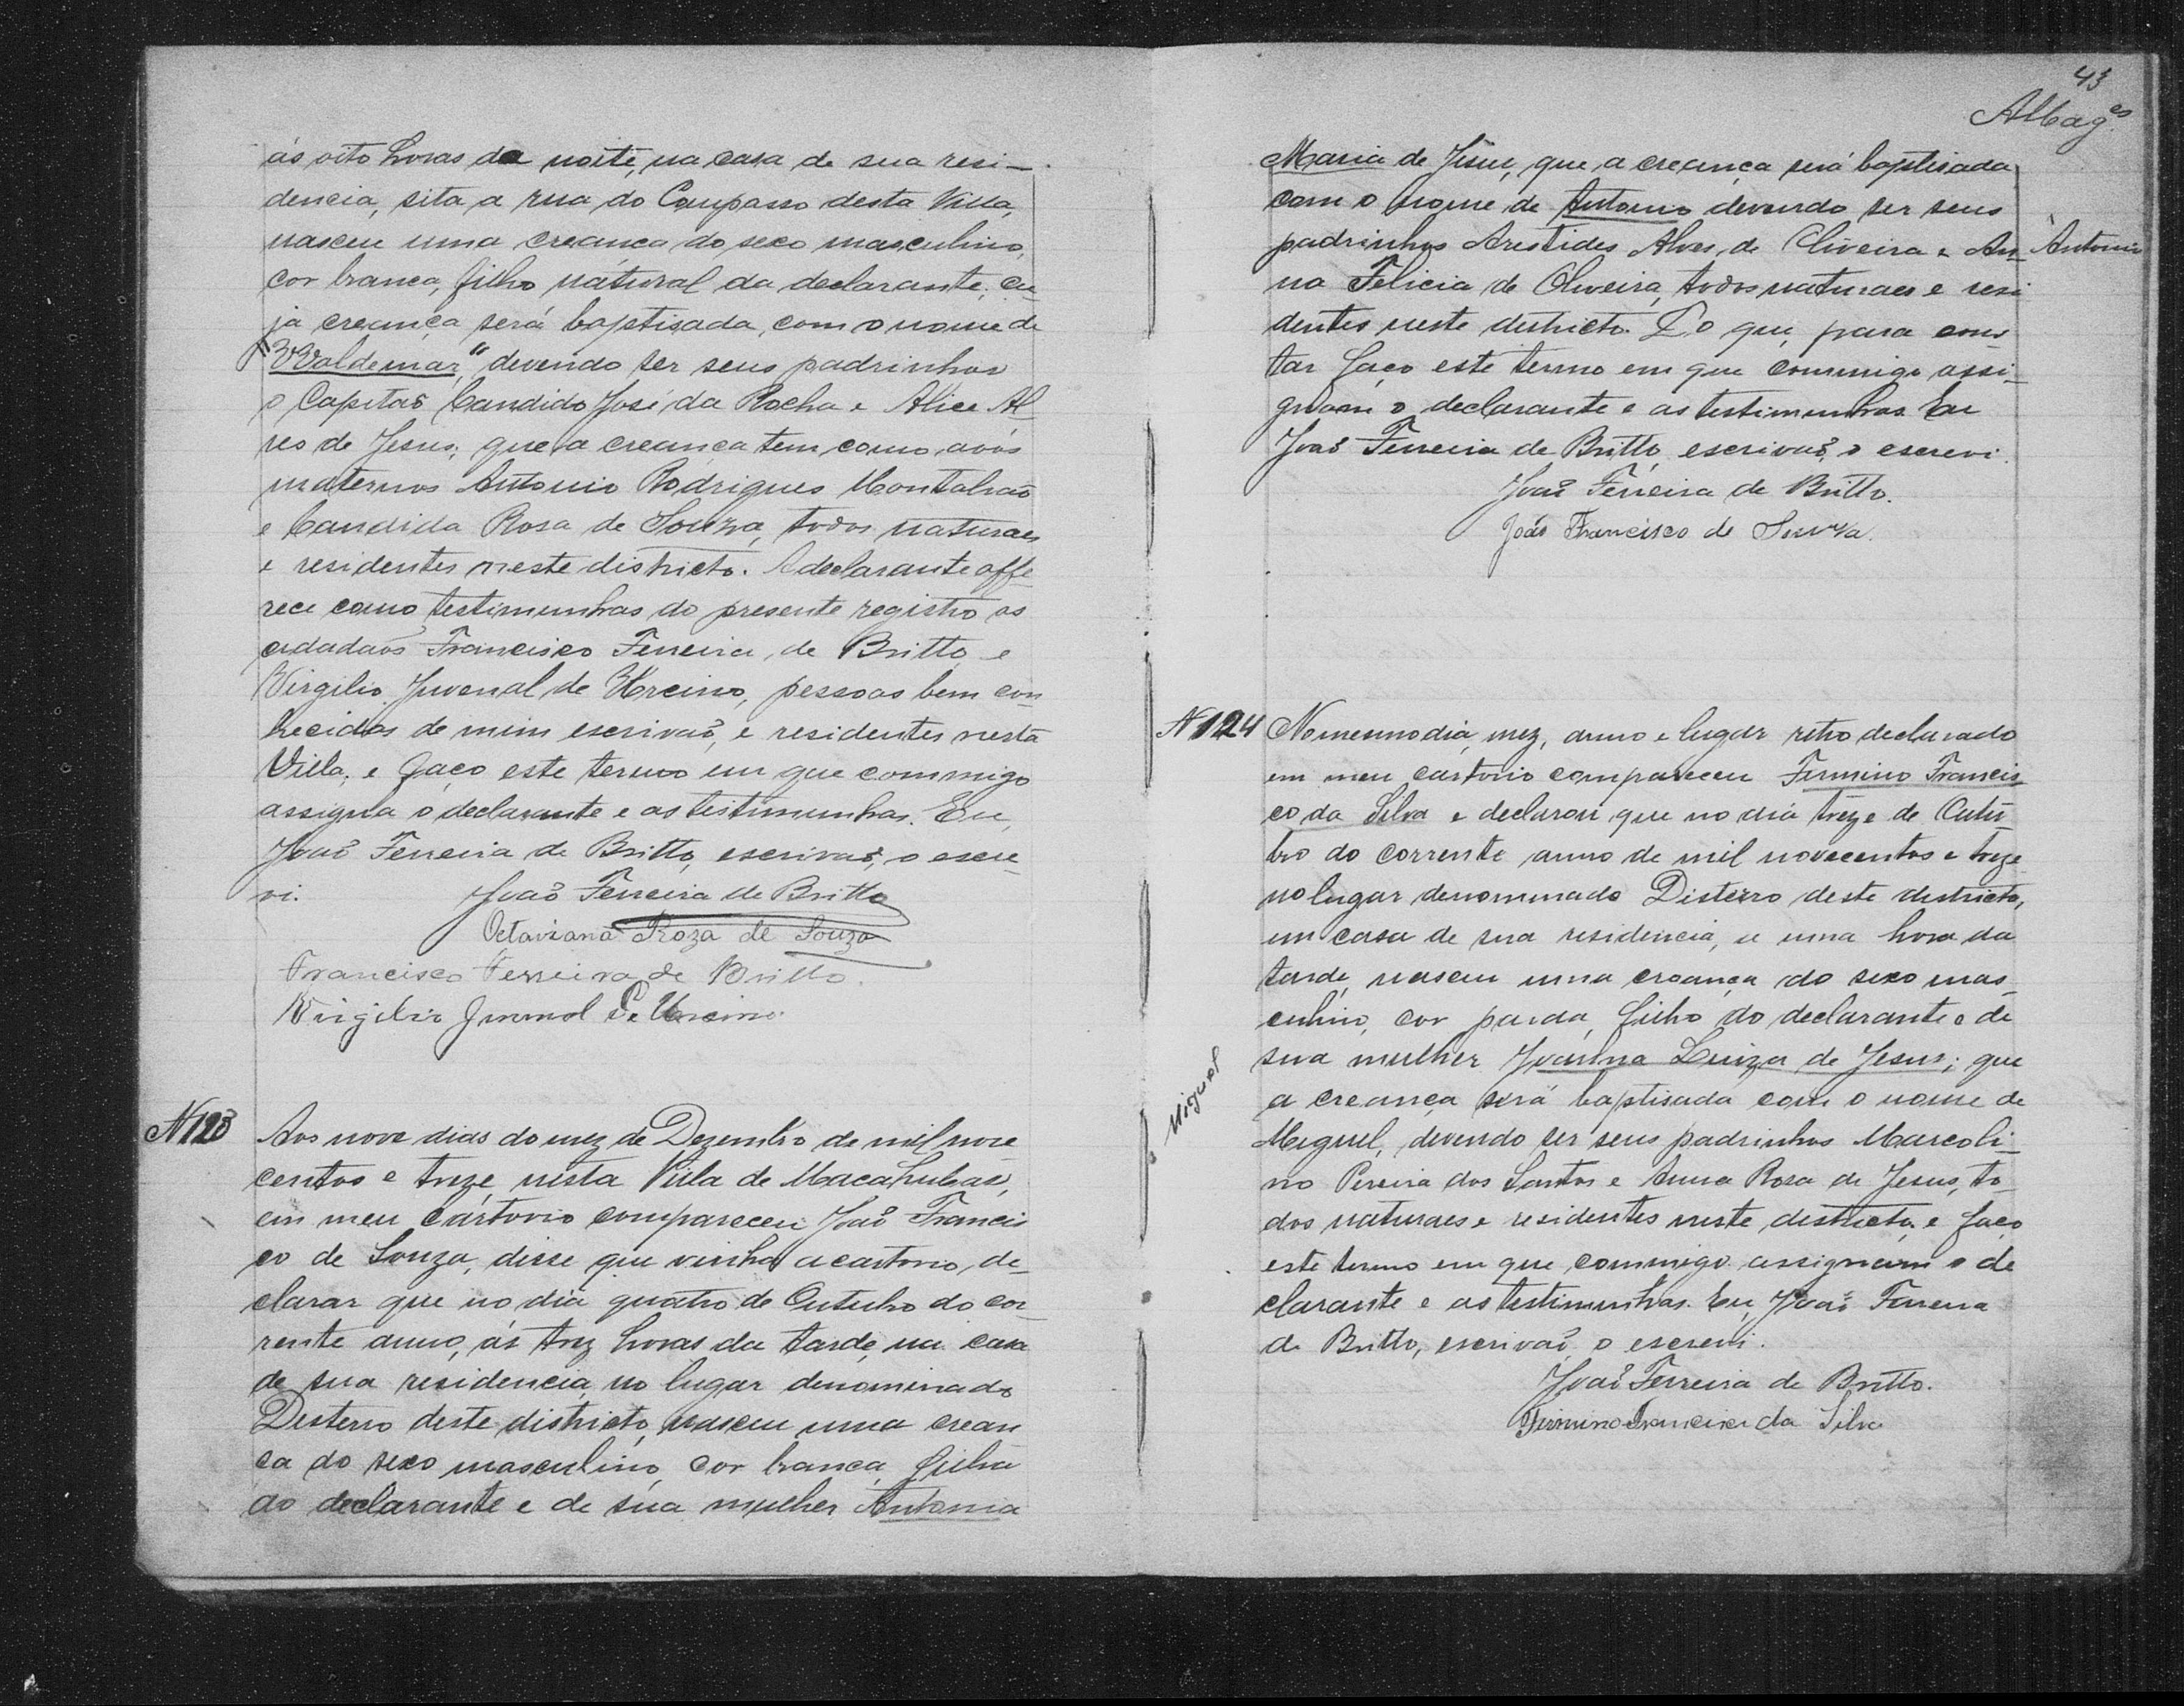 ás oito horas da noite, na casa de sua resi-
dencia, sita a rua do Compasso desta Villa,
nasceu uma creança do sexo masculino,
cor branca, filho natural da declarante, cu-
ja creança será baptisada, com o nome de
"Waldemar," devendo ser seus padrinhos
o Capitaõ Candido José da Rocha e Alice Al-
res de Jesus; que a creança tem, como, avós
maternos Antonio Rodrigues Montalvaõ
e Candida Rosa de Souza, todos naturaes
e residentes neste districto. A declarante offe-
rece como testimunhas do presente registro os
cidadaõs Francisco Ferreira, de Britto e
Virgilio Juvenal de Urcino, pessoas bem con-
hecidas de mim escrivaõ, e residentes nesta
Villa; e faço este termo em que commigo
assigna o declarante e as testimunhas. Eu,
Joaõ Ferreira de Britto, escrivaõ, o escre-
vi. Joaõ Ferreira de Britto
Octaviana Roza de Souza
Francisco Ferreira de Britto.
Virgilio Juvenal de Urcino.
N 123 Aos nove dias do mez de Dezembro de mil nove
centos e treze nesta Villa de Macahubas,
em meu cartorio compareceu Joaõ Francis
co de Souza, disse que vinha a cartorio, de-
clarar que no dia quatro de Outubro do cor-
rente anno, ás trez horas da tarde, na casa
de sua residencia no lugar denominado
Desterro deste districto, nasceu uma crean
ca do sexo masculino, cor branca, filho
do declarante e de sua mulher Antonia
43
Maria de Jesus, que a creança será baptisada
com o nome de Antonio devendo ser seus
padrinhos Arestides Alves, de Oliveira e An- Antonio
na Felicia de Oliveira, todos naturaes e resi
dentes neste districto. Do que, para cons
tar faço este termo em que commigo assi-
gnam o declarante e as testimunhas. Eu
Joaõ Ferreira de Britto, escrivaõ, o escrevi.
Joaõ Ferreira de Britto.
João Francisco de Souza.
N 124 No mesmo dia, mez, anno e lugar retro declarado
em meu cartorio compareceu Firmino Francis
co da Silva e declarou que no dia treze de Outu
bro do corrente anno de mil novecentos e treze
no lugar denominado Disterro deste districto,
em casa de sua residencia, a uma hora da
tarde, nasceu uma creança do sexo mas-
culino, cor parda, filho do declarante e de
sua mulher Joanna Luiza de Jesus; que
a creança será baptisada com o nome de
Miguel
Miguel, devendo ser seus padrinhos Marcoli-
no Pereira dos Santos e Anna Rosa de Jesus, to-
dos naturaes e residentes neste districto, e faço
este termo em que commigo assignam o de
clarante e as testimunhas. Eu, Joaõ Ferreira
de Britto, escrivaõ, o escrevi.
Joaõ Ferreira de Britto.
Firmino Francisco da Silva